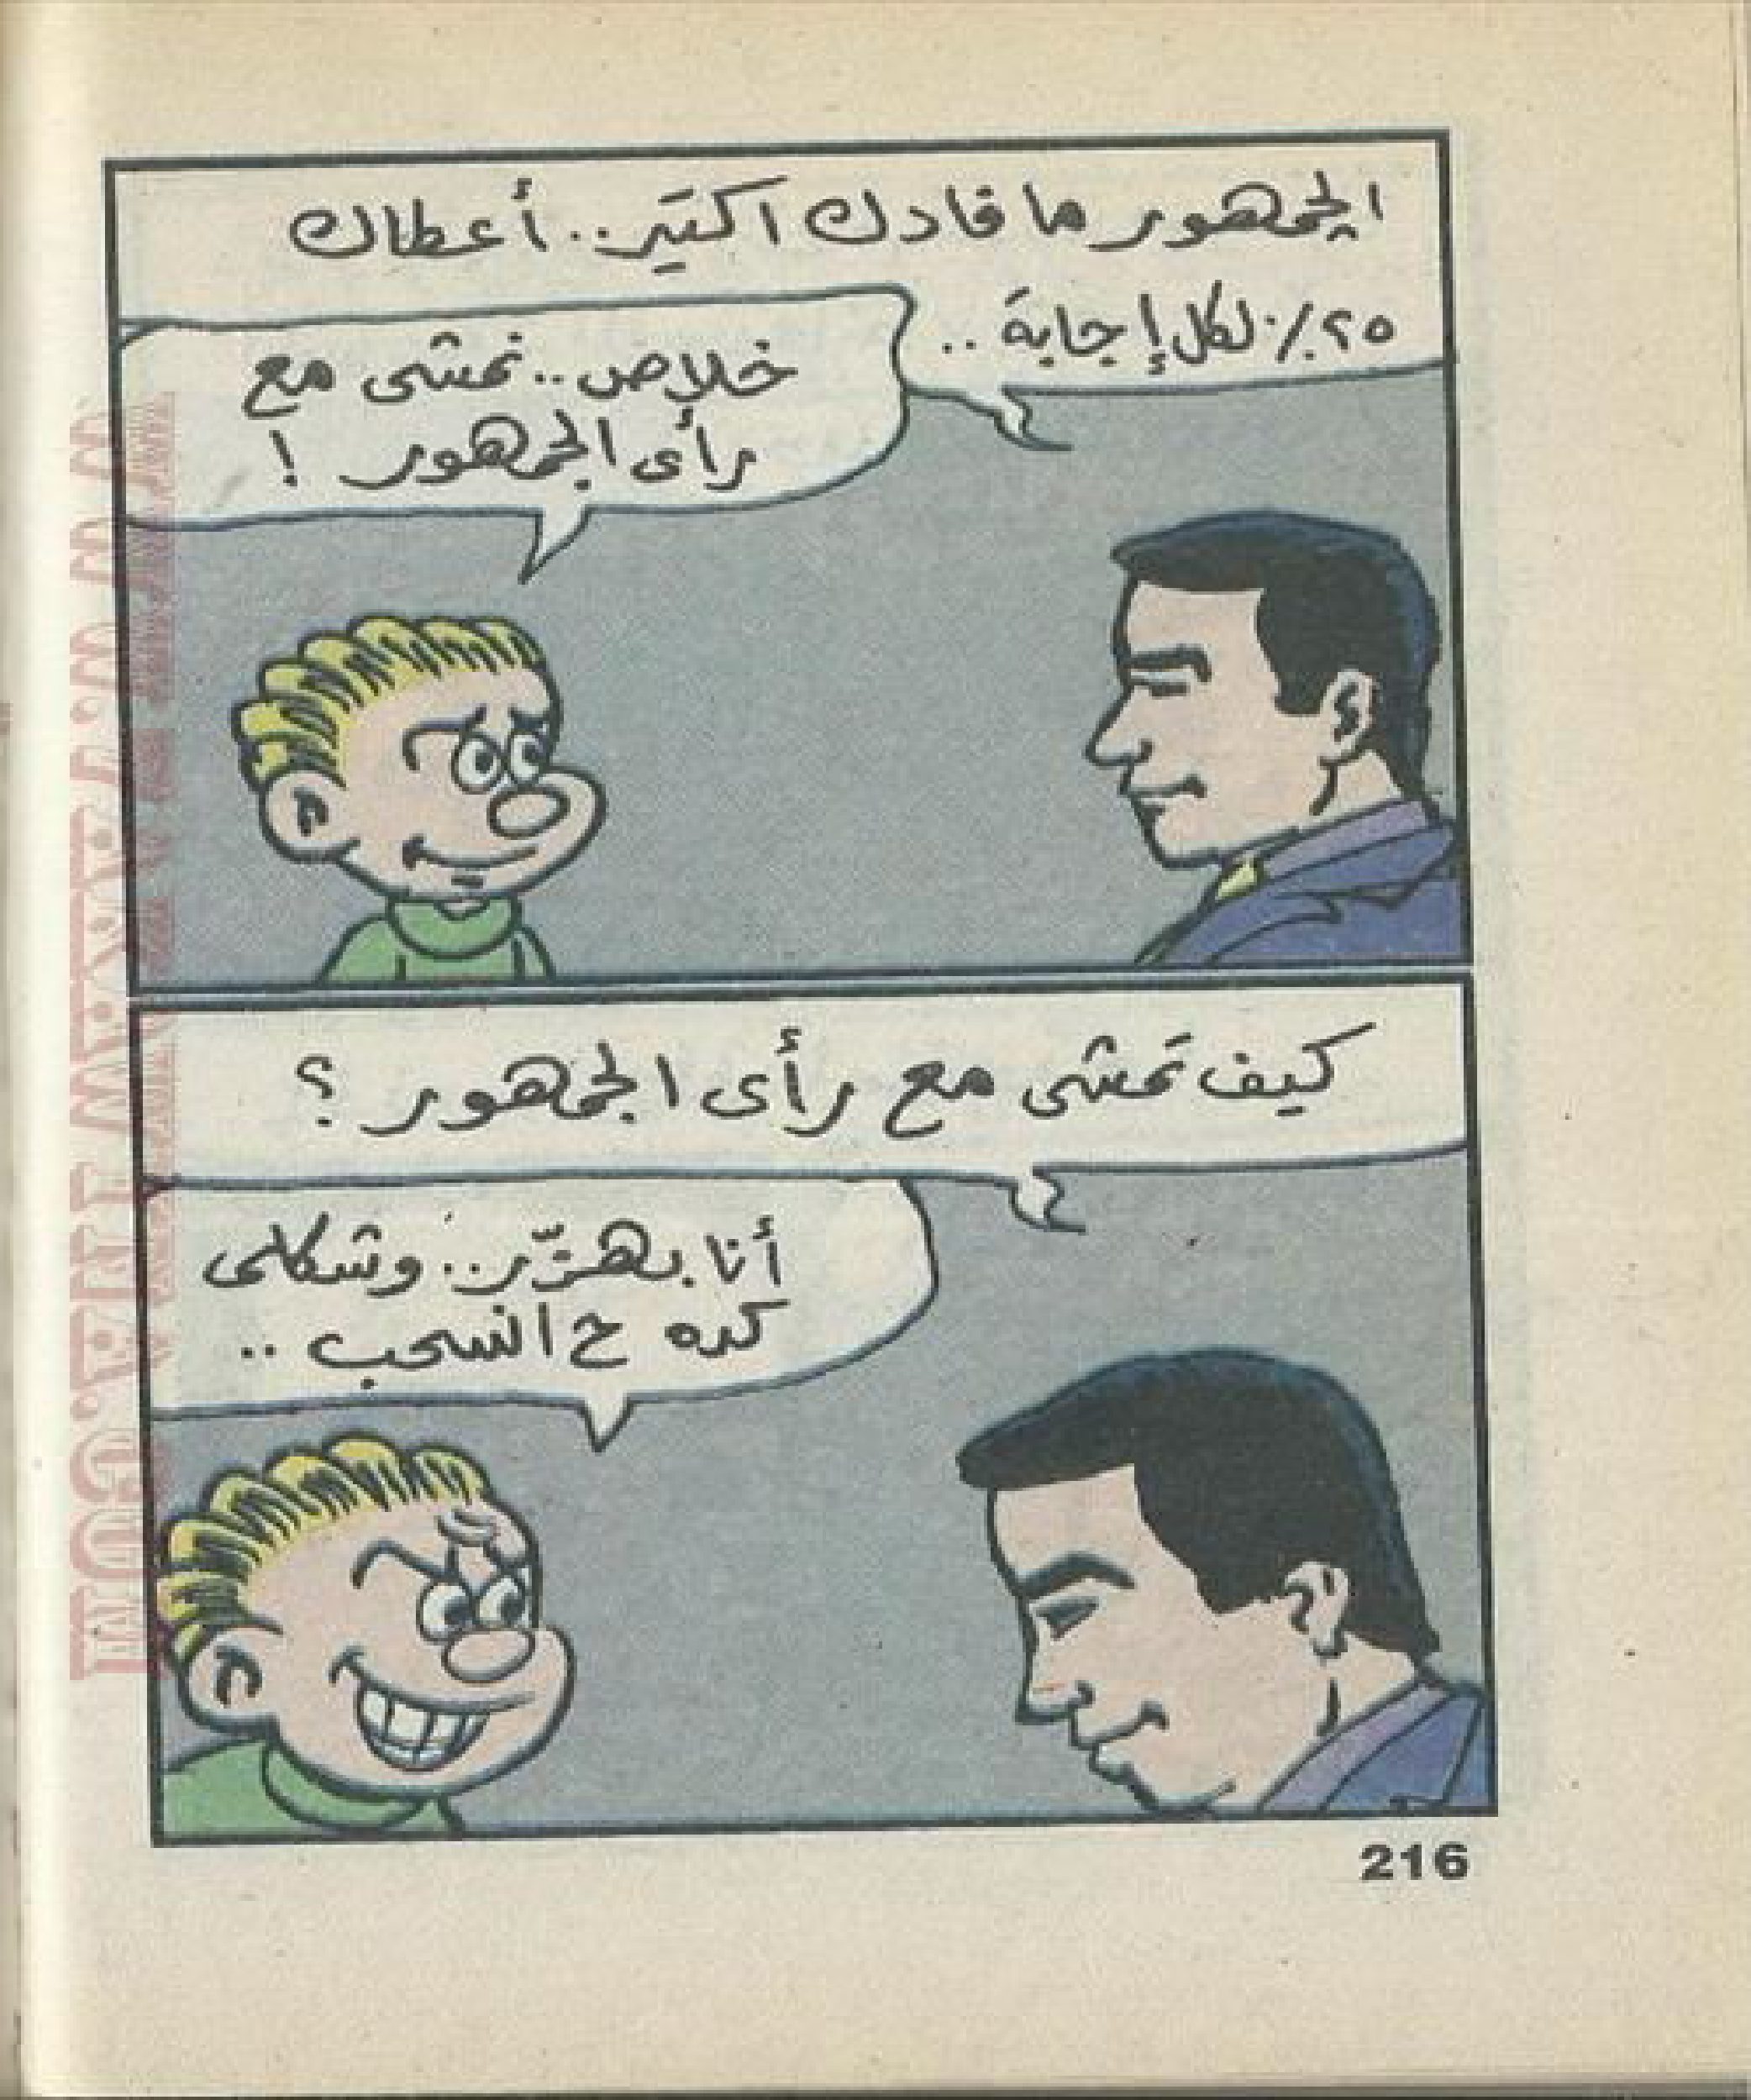 الجمهور ما فادك اكتير.. أعطاك
٢٥٪ لكل إجابة ..
خلاص.. نمشى مع
رأى الجمهور !
كيف تمشى مع رأى الجمهور ؟
أنا بهزّر.. وشكلى
كده ح انسحب ..
216